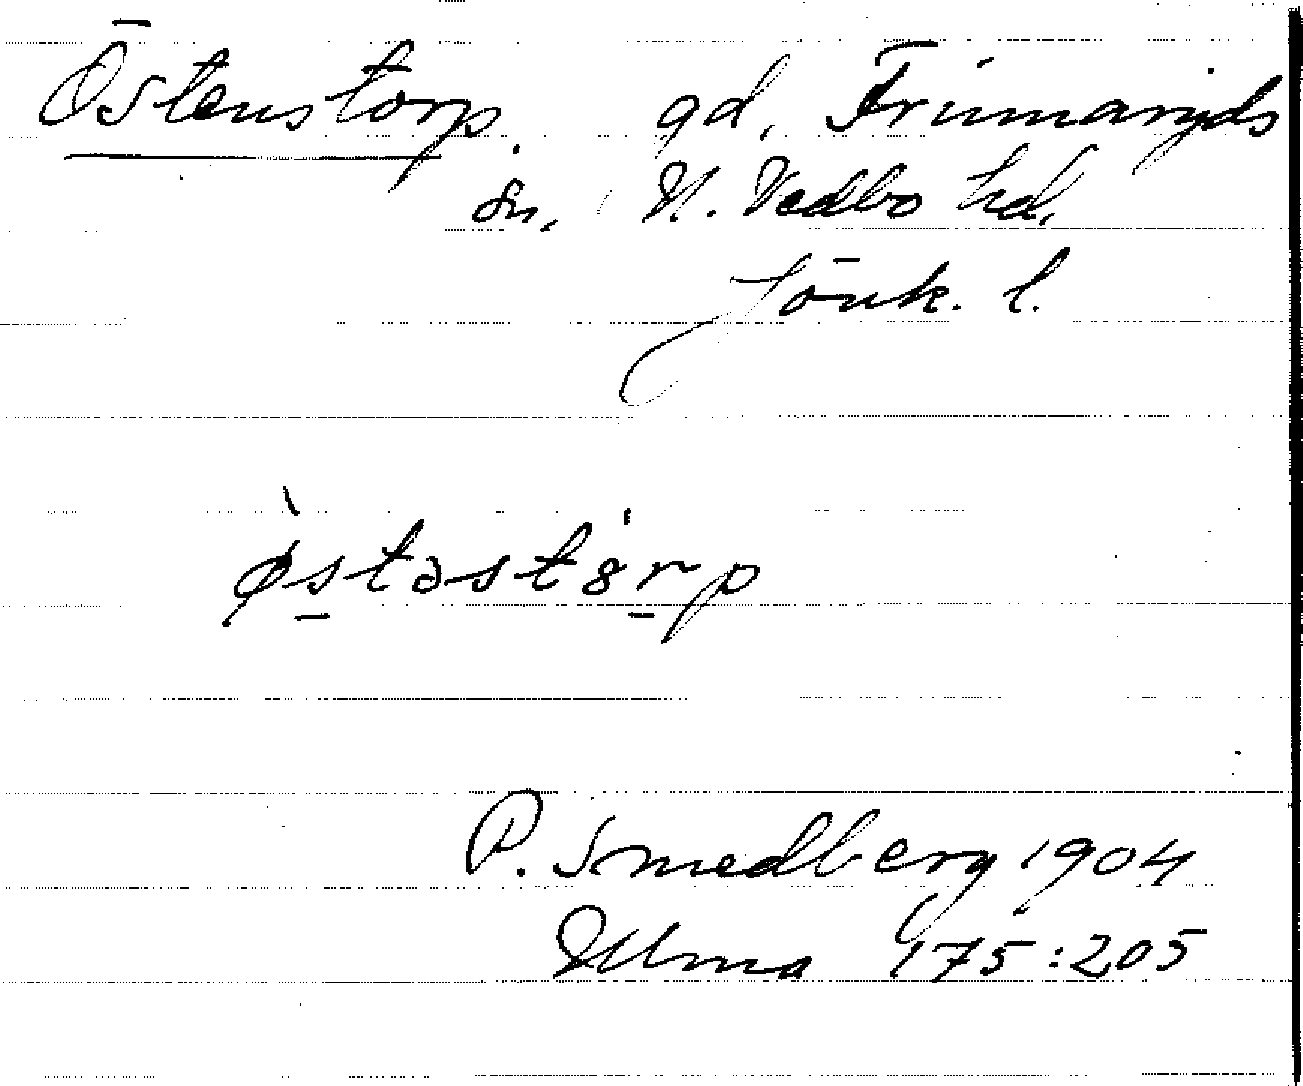 Östenstorp. gd, Frinnaryds
sn, N. Vedbo hd,
Jönk. l.
ø̀s̠təst8́r̠p
P. Smedberg 1904
Ulma 175:205